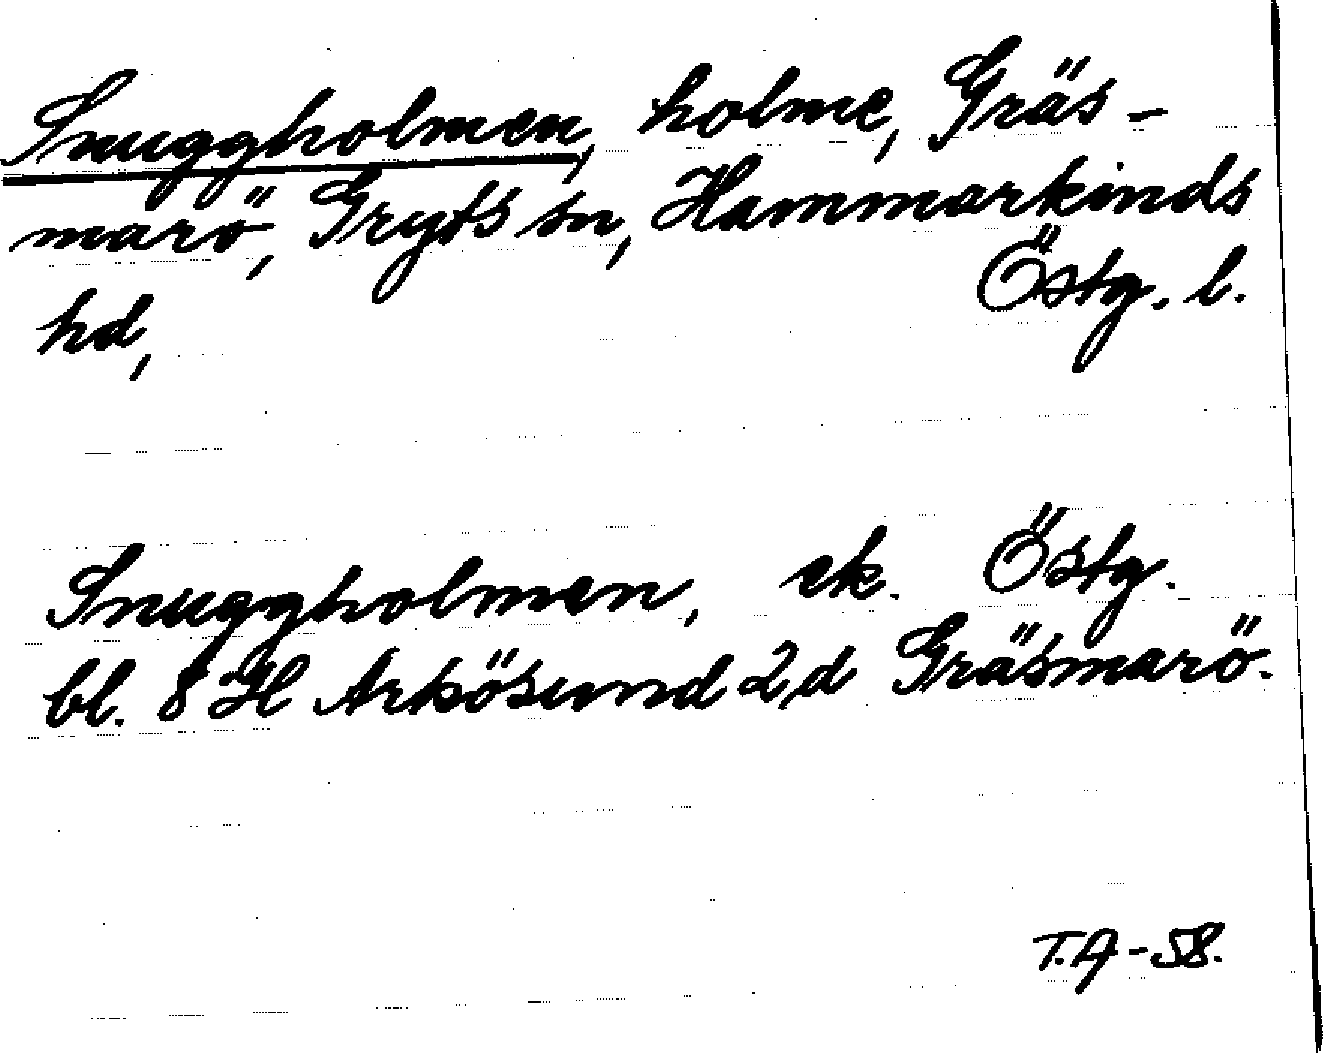 Snuggholmen, holme, Gräs-
marö, Gryts sn, Hammarkinds
hd, Östg. l.
Snuggholmen, ek. Östg.
bl. 8 H Arkösund 2,d Gräsmarö.
T.A-58.